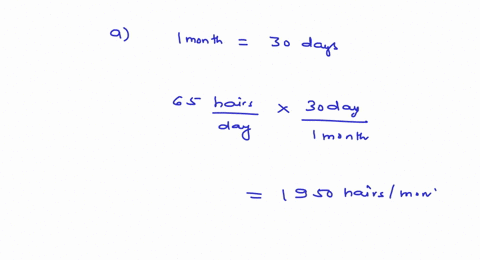 a) 1 month = 30 days
65 hairs/day × 30 day/1 month
= 1950 hairs/mon